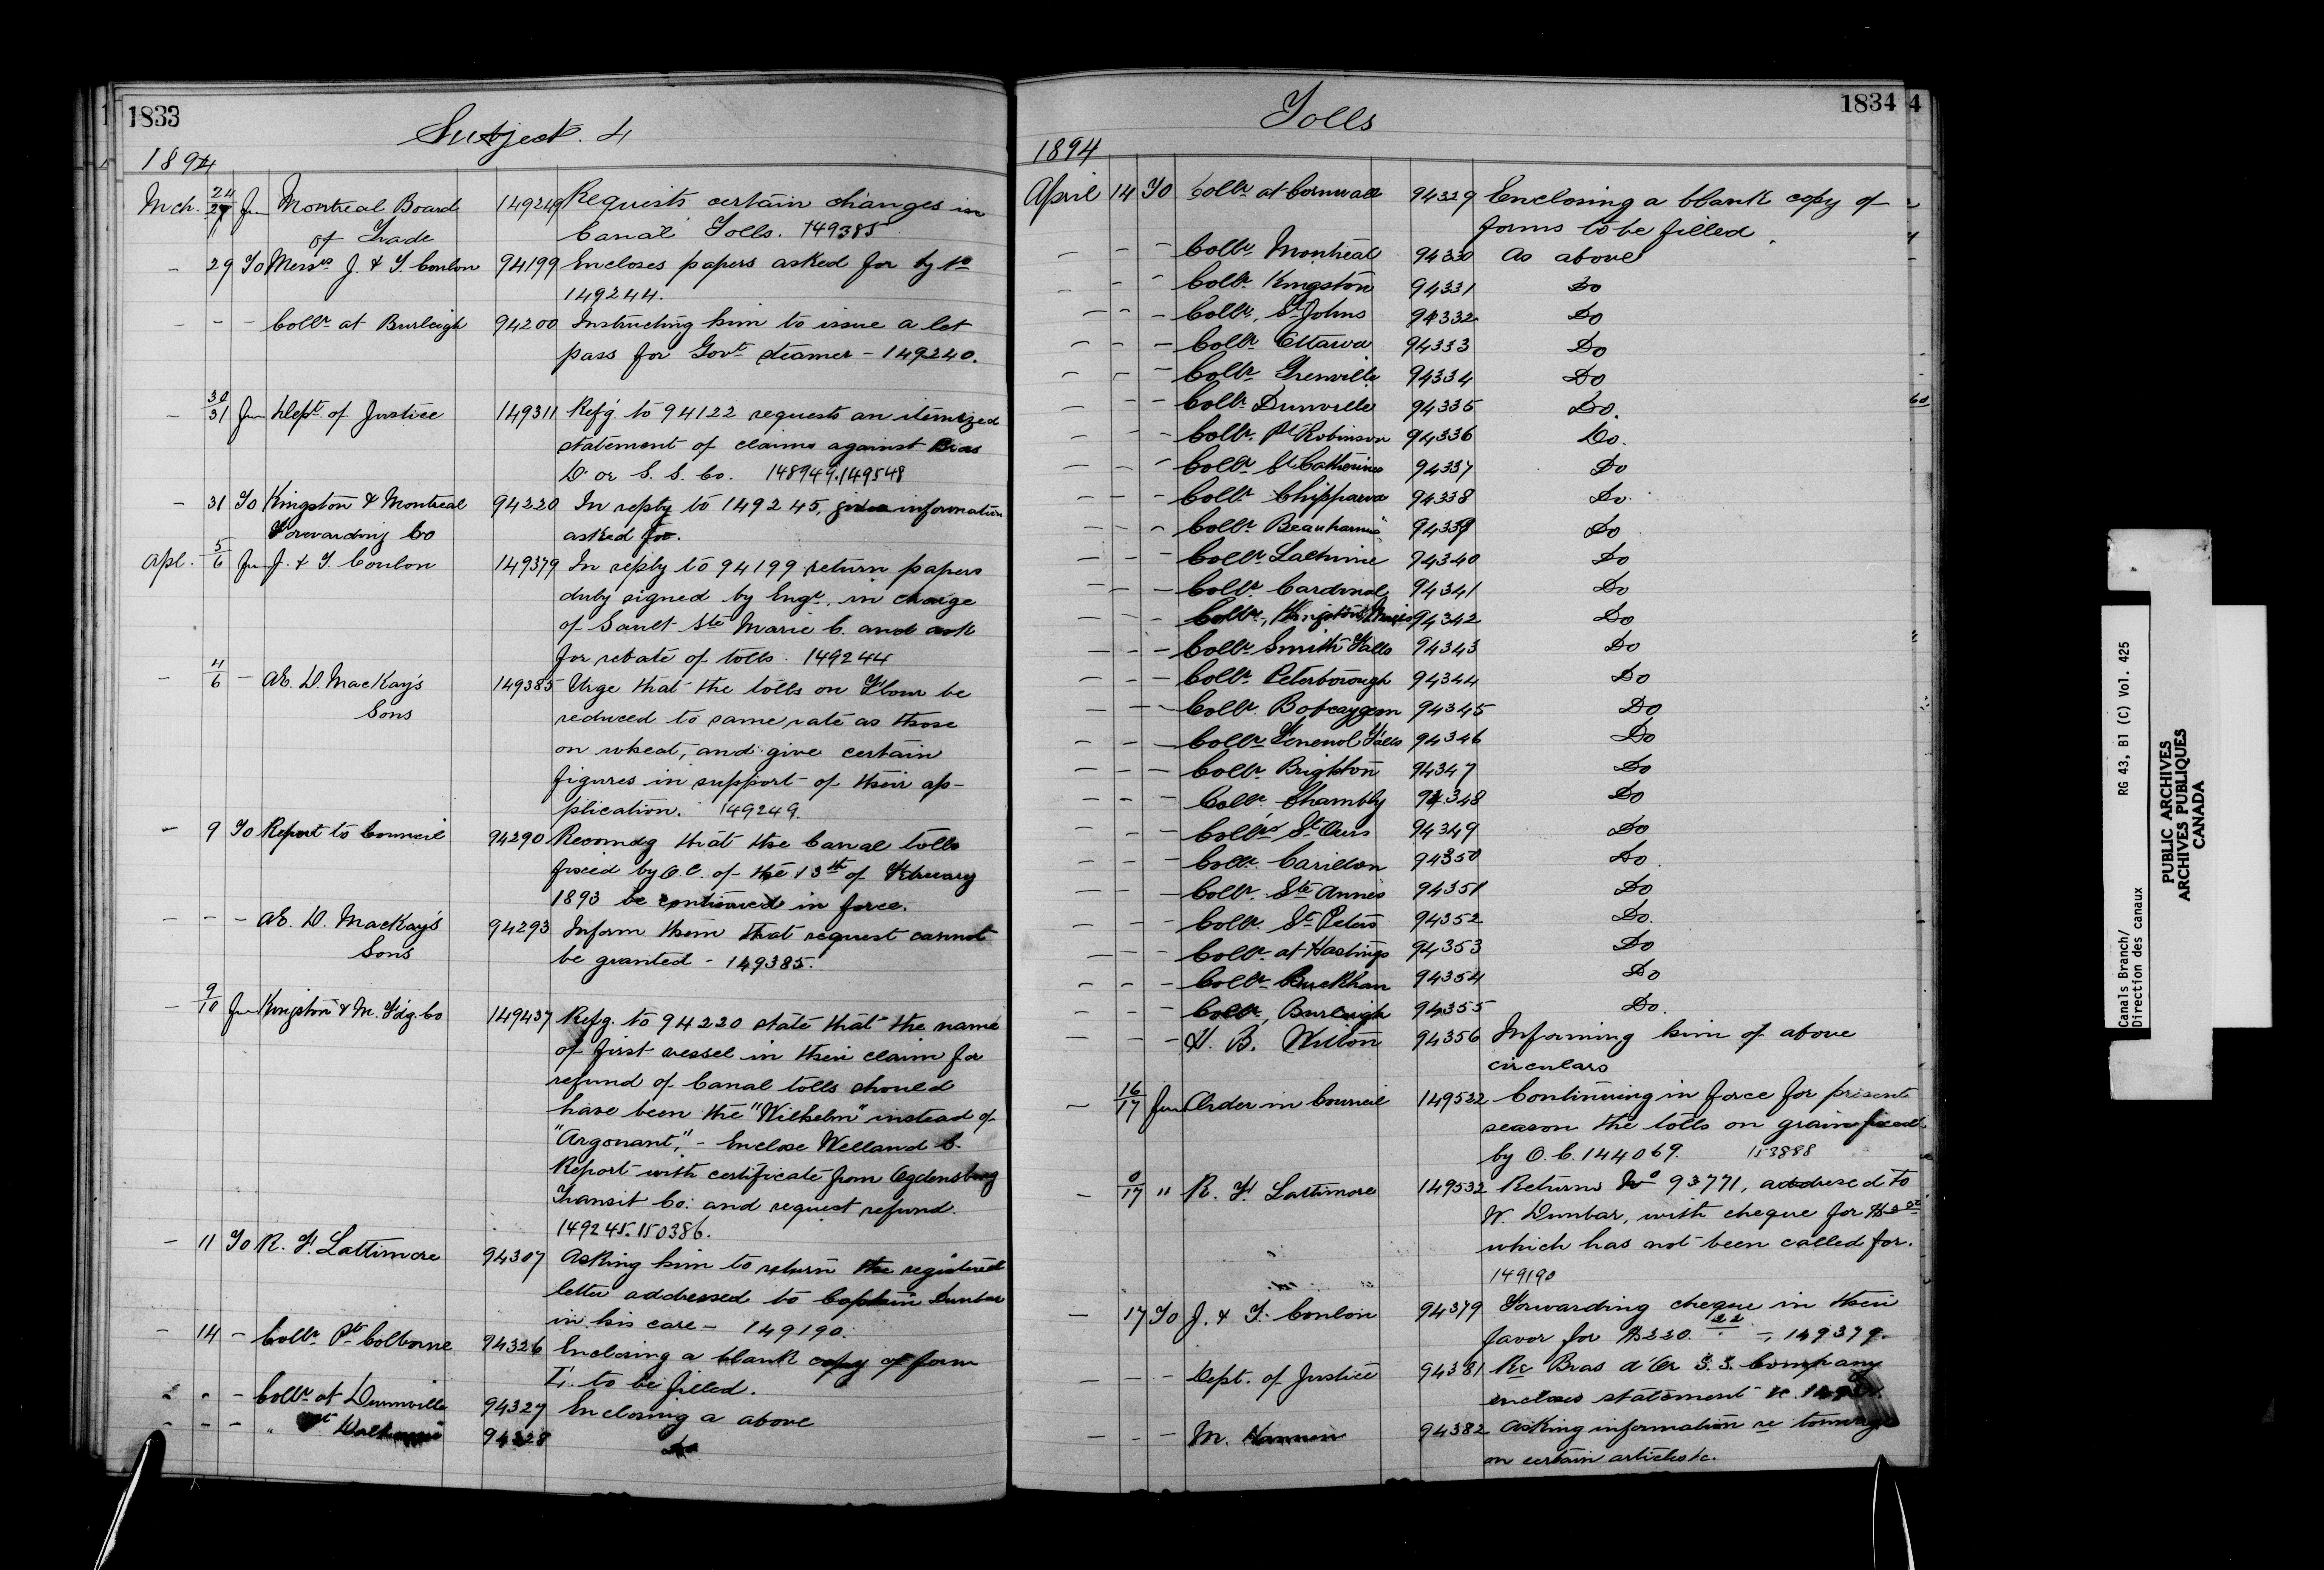 1833
Subject. 4
1894
Mch. 24/27 Fm Montreal Board 149249 Requests certain changes in
of Trade Canal Tolls. 149385
- 29 To Messrs J. & T. Conlon 94199 Encloses papers asked for by No
149244.
- - - Collr at Burleigh 94200 Instructing him to issue a let
pass for Govt steamer - 149240.
- 30/31 Fm Dept of Justice 149311 Refg. to 94122 requests an itemized
statement of claims against Bras
D'or S. S. Co. 148949. 149548
- 31 To Kingston & Montreal 94220 In reply to 149245, gives information
Forwarding Co asked for.
Apl. 5/6 Fm J. & T. Conlon 149379 In reply to 94199 return papers
duly signed by Engr. in charge
of Sault Ste Marie C. and ask
for rebate of tolls. 149244
- 4/6 - AE. D. MacKay's 149385 Urge that the tolls on Flour be
Sons reduced to same rate as those
on wheat, and give certain
figures in support of their ap-
plication. 149249.
- 9 To Report to Council 94290 Recomdg that the Canal tolls
fixed by O.C. of the 13th of February
1893 be continued in force.
- - - AE. D. MacKay's 94293 Inform them that request cannot
Sons be granted - 149385.
- 9/10 Fm Kingston & M. Fdg. Co 149437 Refg. to 94220 state that the name
of first vessel in their claim for
refund of Canal tolls should
have been the "Wilhelm" instead of
"Argonant," - Enclose Welland C.
Report with certificate from Ogdensburg
Transit Co: and request refund.
149245. 150386.
- 11 To R. F. Lattimore 94307 Asking him to return the registered
letter addressed to Captain Dunbar
in his care - 149190.
- 14 - Collr Pt Colborne 94326 Enclosing a blank copy of form
to be filled.
- - - Collr at Dunnville 94327 Enclosing a above
- - - " at 94328 Do
Tolls
1834
4
1894
April 14 To Collr at Cornwall 94329 Enclosing a blank copy of
forms to be filled.
- - - Collr Montreal 94330 As above
- - - Collr Kingston 94331 Do
- - - Collr. St Johns 94332 Do
- - - Collr Ottawa 94333 Do
- - - Collr Grenville 94334 Do
- - - Collr Dunville 94335 Do.
- - - Collr. Pt Robinson 94336 Do.
- - - Collr St Catherines 94337 Do
- - - Collr. Chippawa 94338 Do.
- - - Collr Beauharnis 94339 Do
- - - Collr Lachine 94340 Do
- - - Collr. Cardinal 94341 Do
- - - Collr., Kingston Mills 94342 Do
- - - Collr Smith Falls 94343 Do
- - - Collr. Peterborough 94344 Do
- - - Collr. Bobcaygeon 94345 Do
- - - Collr Fenenol Falls 94346 Do
- - - Collr. Brighton 94347 Do
- - - Collr. Chambly 94348 Do
- - - Collrs St Ours 94349 Do
- - - Collr. Carillon 94350 Do.
- - - Collr. Ste Annes 94351 Do
- - - Collr. St Peters 94352 Do.
- - - Collr. at Hastings 94353 Do
- - - Collr. Buckhan 94354 Do
- - - Collr, Burleigh 94355 Do.
- - - H. B. Wilton 94356 Informing him of above
circulars
- 16/17 Fm Order in Council 149522 Continuing in force for present
season the tolls on grain fixed
by O. C. 144069. 153888
- 0/17 " R. F. Lattimore 149532 Returns No 93771, addresed to
W. Dunbar, with cheque for
which has not been called for.
149190
- 17 To J. & T. Conlon 94379 Forwarding cheque in their
favor for $220.22 -, 149379.
- - - Dept. of Justice 94381 Re Bras d'Or S. S. Company
encloses statement &c.
- - - M. 94382 Asking information re tonnage
on certain articles &c.
Canals Branch/
Direction des canaux
RG 43, B1 (C) Vol. 425
PUBLIC ARCHIVES
ARCHIVES PUBLIQUES
CANADA